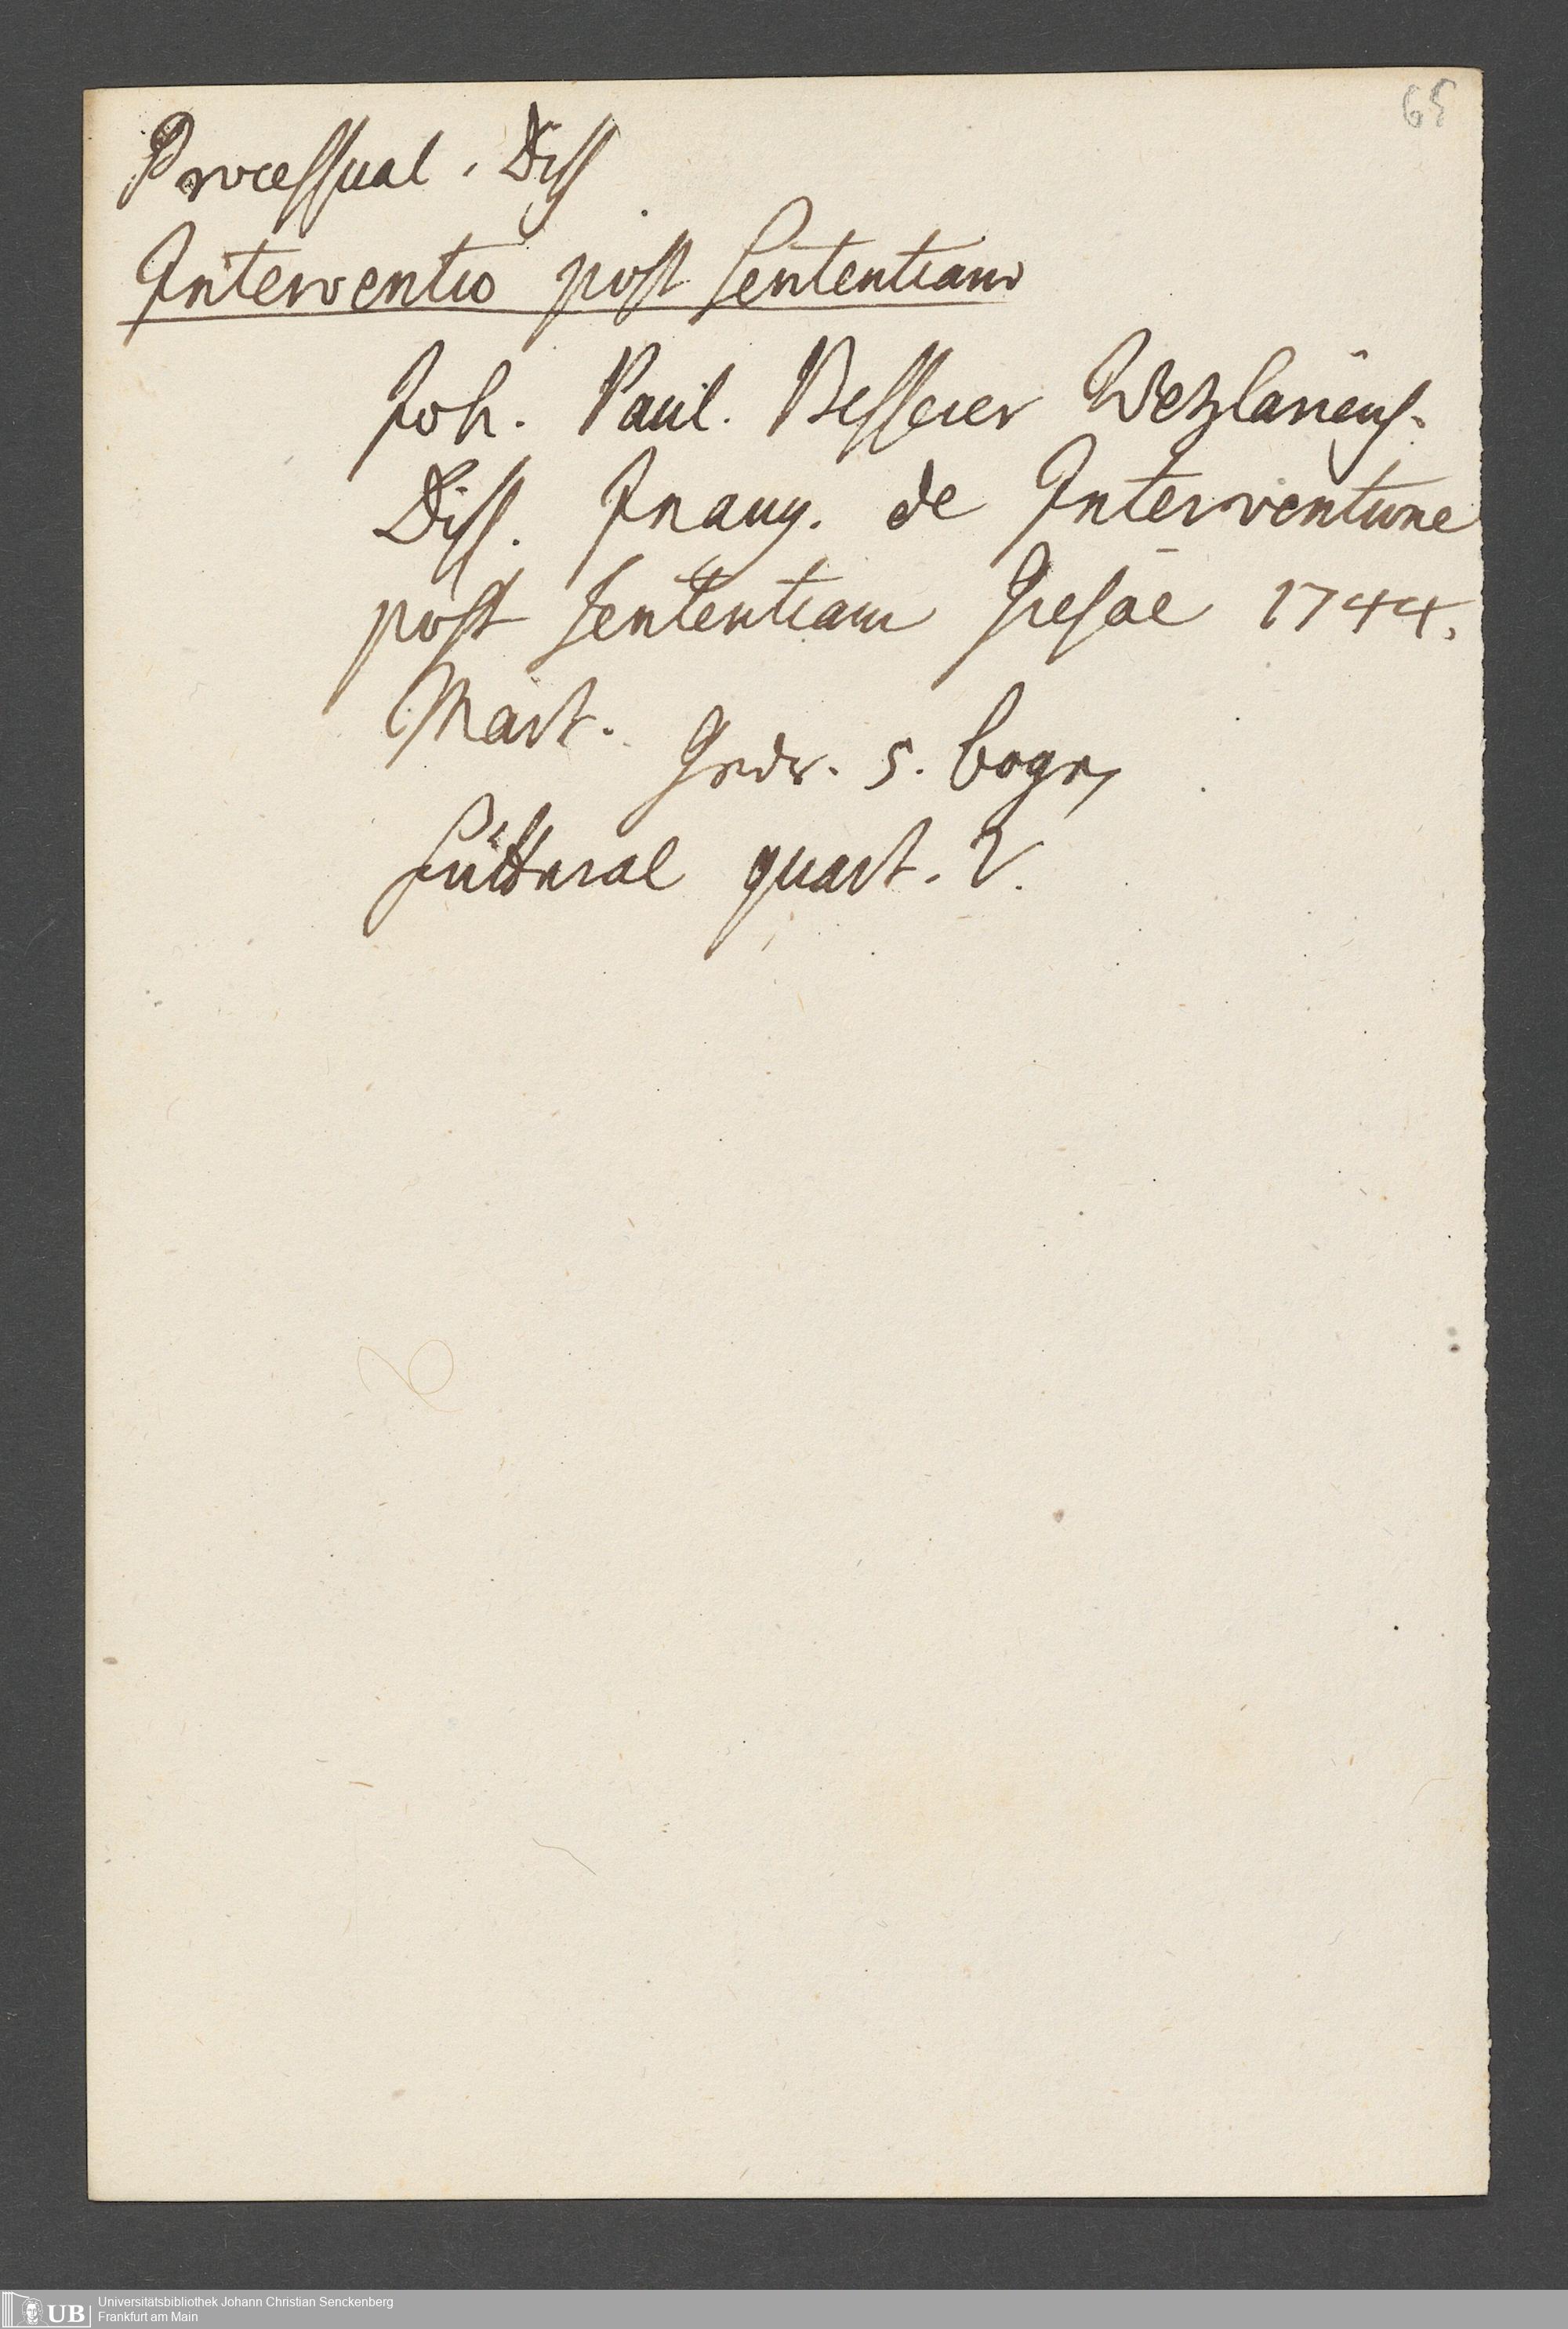 65
Processual. Diss
Interventio post Sententiam
Joh. Paul. Besserer Wetzlariens.
Diss. Inaug. de Interventione
post Sententiam Giesae 1744.
Mart.
Gedr. 5. bogn
futteral quart. V.
UB Universitätsbibliothek Johann Christian Senckenberg
Frankfurt am Main